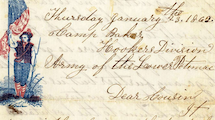 Thursday January 23th. 1862.
Camp Baker
Hookers Division
Army of the Lower Potomac
Dear Cousin